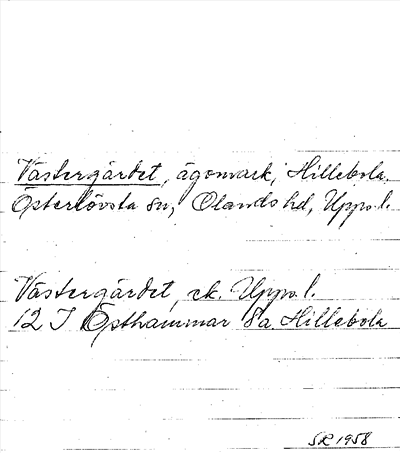 Västergärdet, ägomark, Hillebola,
Österlövsta sn, Olands hd, Upps. l.
Västergärdet, ek. Upps. l.
12 I Östhammar 8a Hillebola
SR 1958